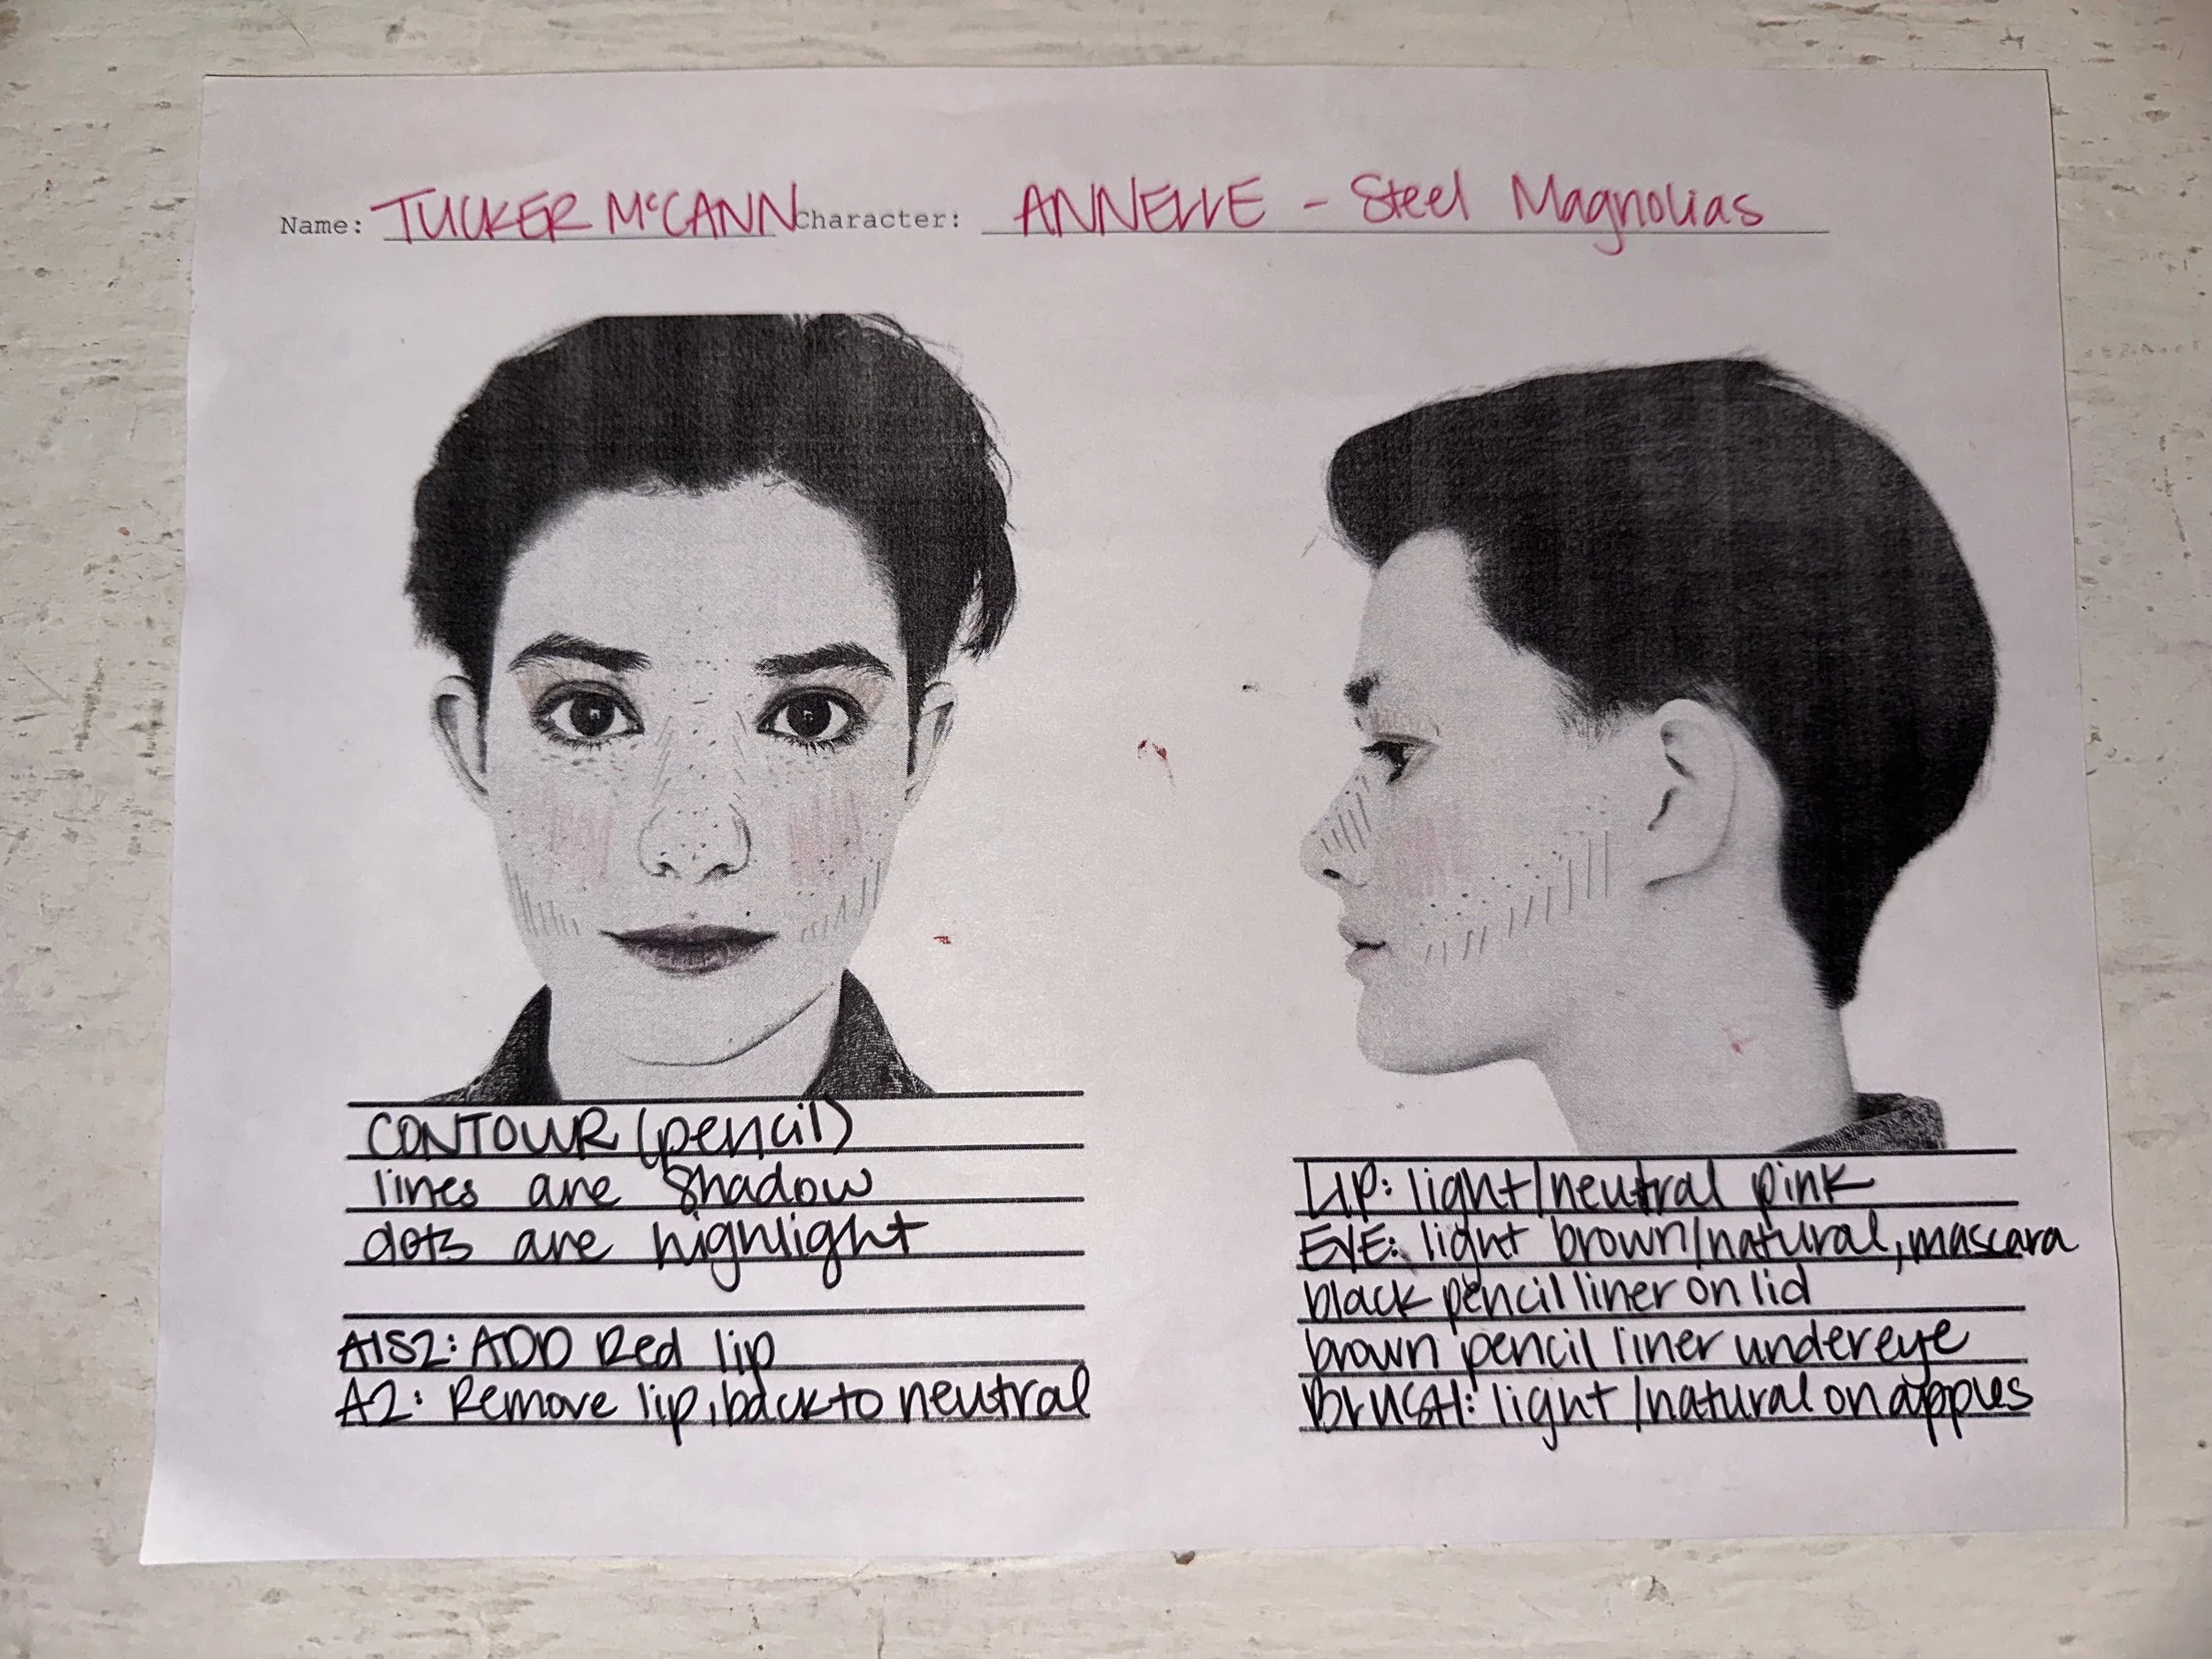 Name: TUCKER McCANN Character: ANNELLE - Steel Magnolias
CONTOUR (pencil)
lines are shadow
dots are highlight
A1S2: ADD Red lip
A2: Remove lip, back to neutral
LIP: light/neutral pink
EYE: light brown/natural, mascara
black pencil liner on lid
brown pencil liner undereye
BLUSH: light/natural on apples